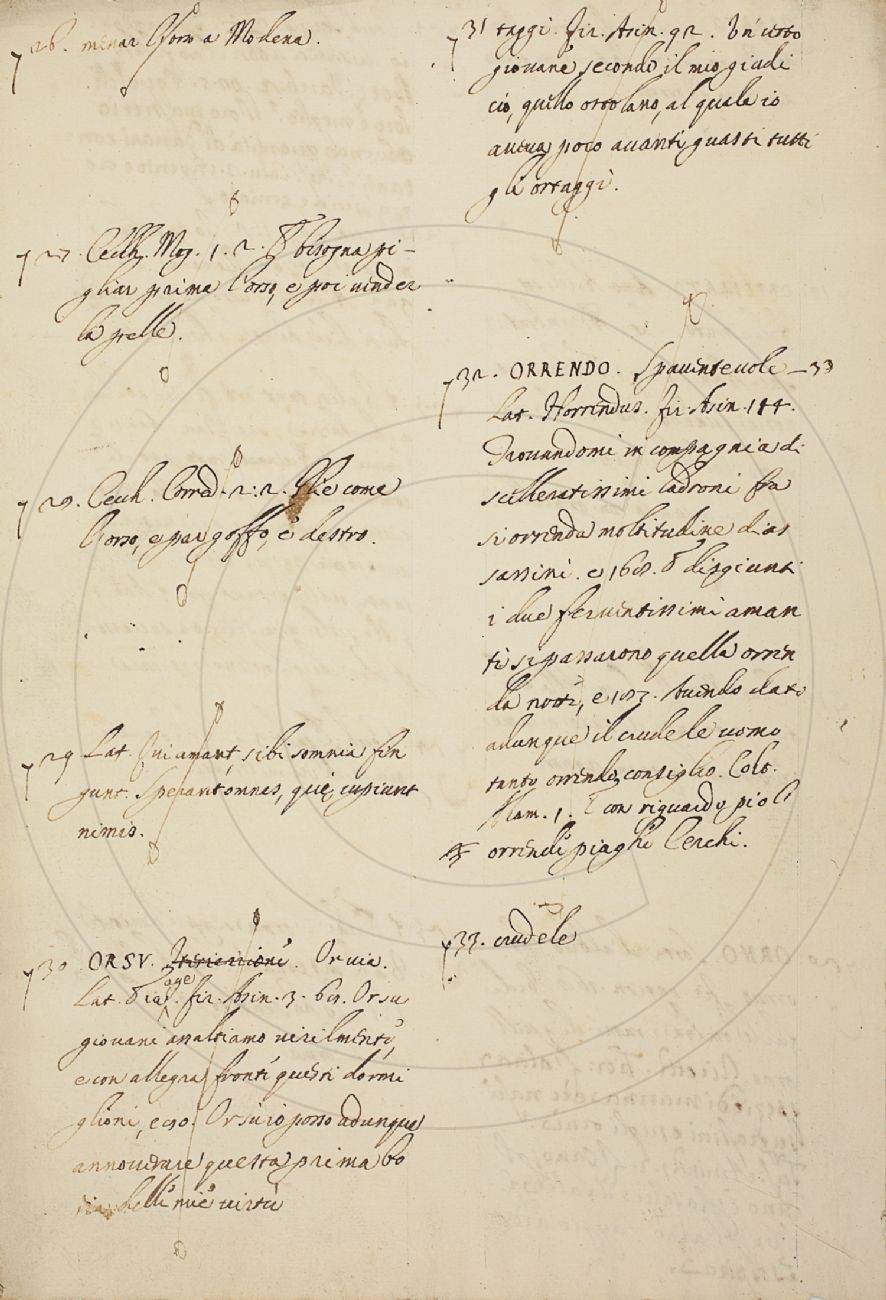 26. menar l'orso a Modena.
27. Cecch. Mog. 1. 2. E bisogna pi-
gliar prima l'orso, e poi vender
la pelle.
28. Cecch. Corred. 2. 2. Gli e come
l'orso, e par goffo, è destro.
29 Lat. Qui amant, sibi somnia fin
gunt. Sperant omnes, quę cupiunt
nimis.
30 ORSV. Or via.
Lat. Eia age. fir. Asin. 3. 69. Orsu
giovani assaltiamo virilmente,
e con allegra fronte questi dormi
glioni, e 90. Orsu io posso adunque
annoverare questa prima lo
delle mie virtù
31 taggi. fir. Asin. 92. Un certo
giovane secondo il mio giudi
cio, quello ortolano, al quale io
aveva poco avanti guasti tutti
gli ortaggi.
32. ORRENDO. Spaventevole - 33
Lat. Horrendus. fir. Asin. 144.
Trovandomi in compagnia di
scelleratissimi ladroni fra
si orrenda moltitudine di as
sassini. e 168. E disgiunti
i due ferventissimi aman
ti si passarono quella orren
da notte, e 187. Avendo dato
adunque il crudele uomo
tanto orrendo consiglio. Colt.
Alam. 1. E con riguardo pio l'
orrende piaghe cerchi.
33. crudele